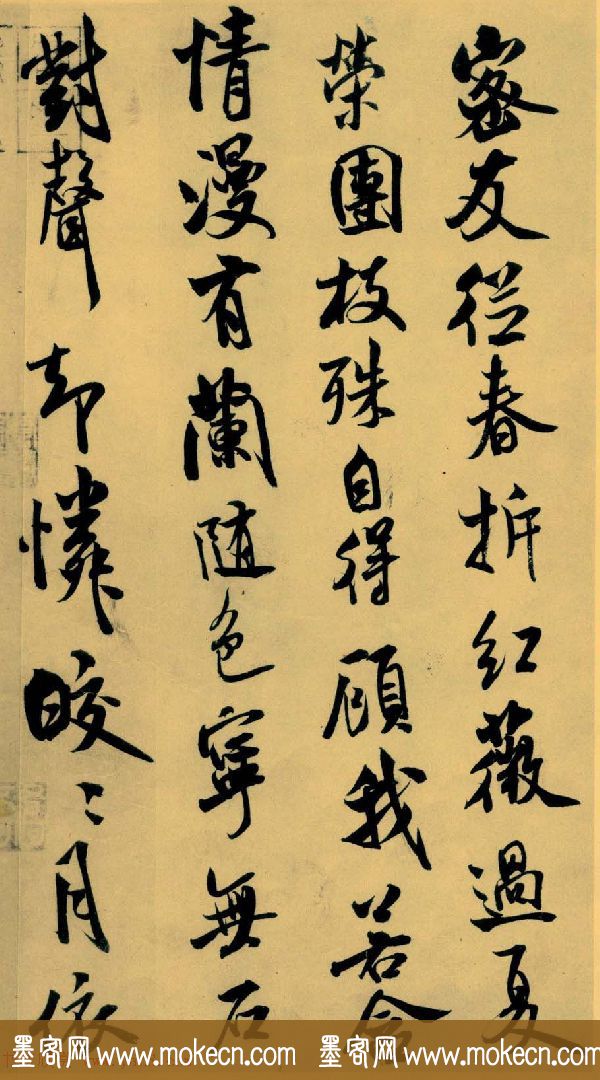 密友從春拆紅薇過夏
榮團枝殊自得顧我若含
情漫有蘭随色寧無石
對聲却憐皎〻月依
墨客网 www.mokecn.com 墨客网 www.mokecn.com